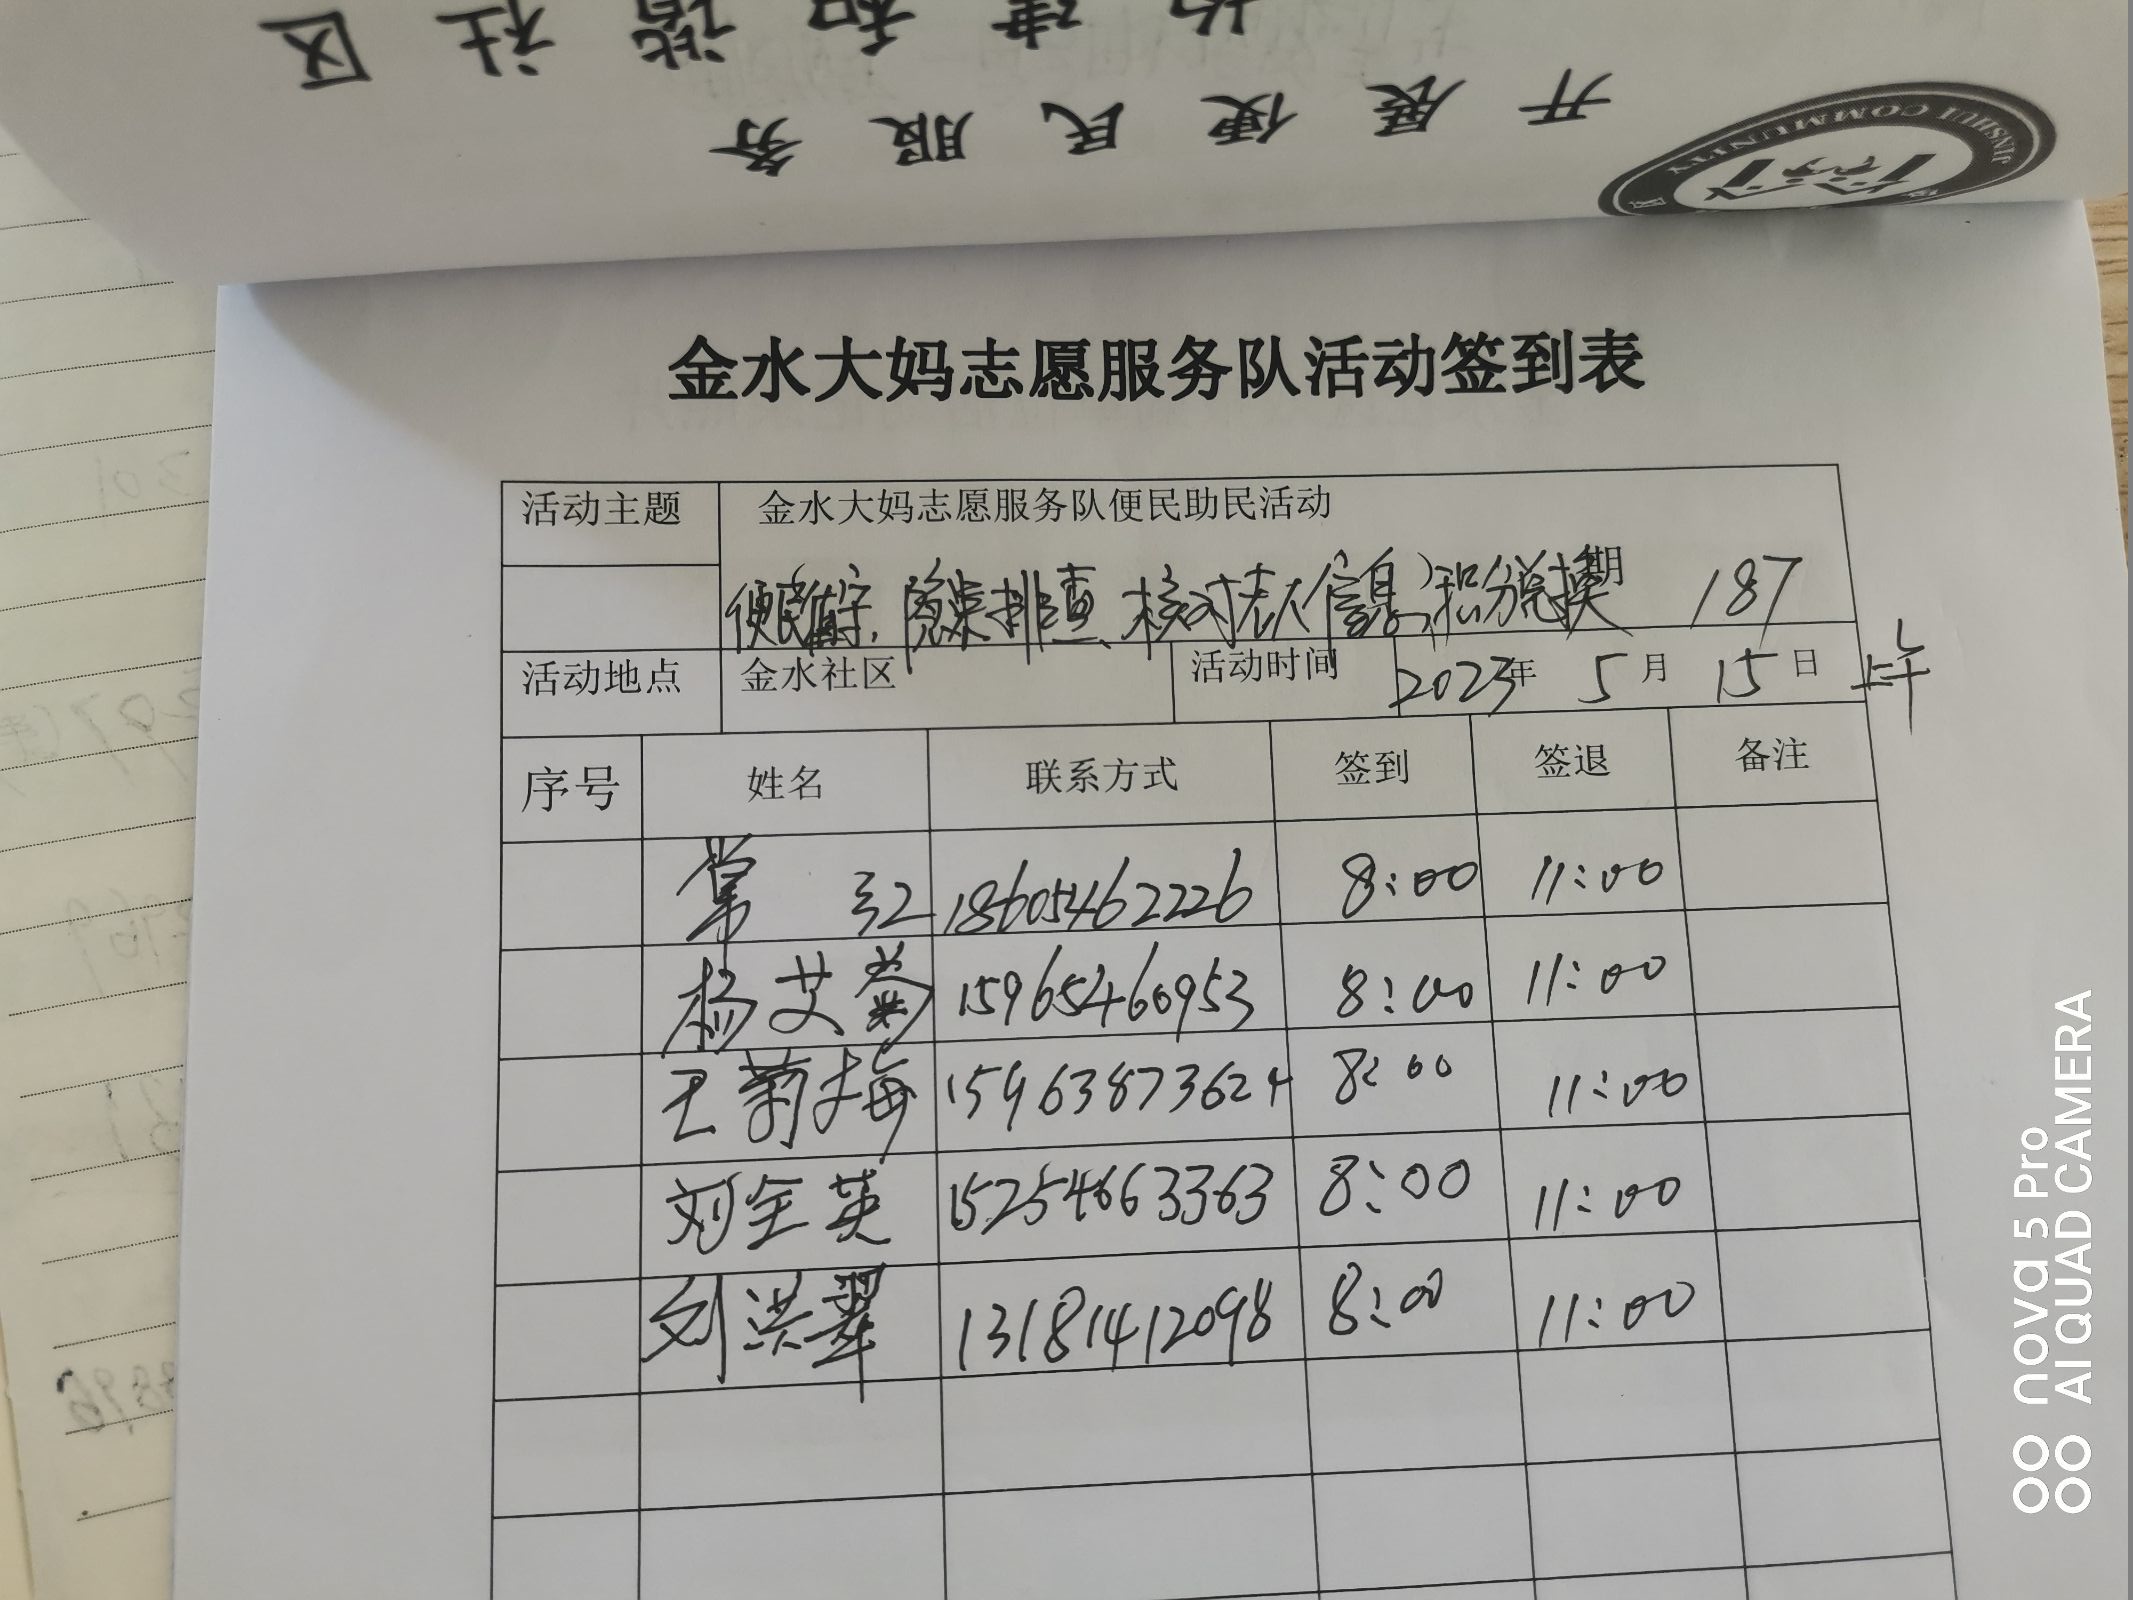 构建和谐社区
开展便民服务
JINSHUI COMMUNITY
金水大妈志愿服务队活动签到表
活动主题 金水大妈志愿服务队便民助民活动
排查、核对老人信息、积分兑换 期 187
活动地点 金水社区 活动时间 2023年 5月 15日 上午
序号 姓名 联系方式 签到 签退 备注
常红 18605462226 8:00 11:00
杨艾 15965460953 8:00 11:00
王菊梅 15963873624 8:00 11:00
刘全英 15254663363 8:00 11:00
刘洪翠 13181412098 8:00 11:00
nova 5 Pro
AI QUAD CAMERA